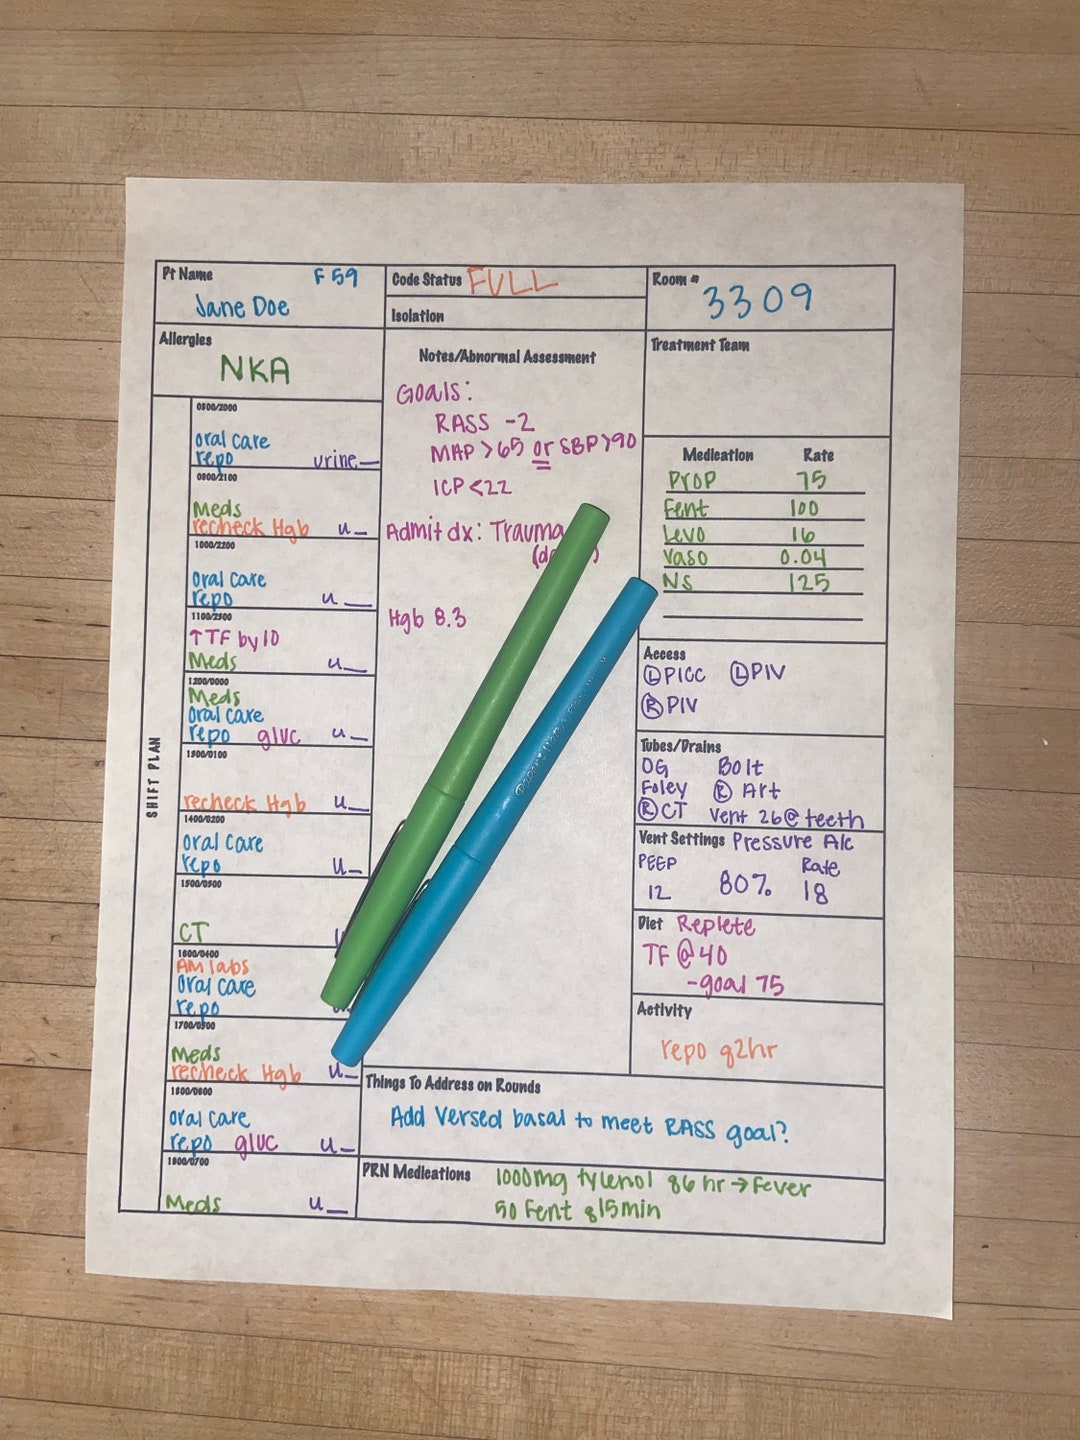 Pt Name F 59
Jane Doe
Code Status FULL
Isolation
Room #
3309
Allergies
NKA
SHIFT PLAN
0800/2000
oral care
repo urine_
0900/2100
Meds
recheck Hgb u_
1000/2200
oral care
repo u_
1100/2300
↑TF by 10
Meds u_
1200/0000
Meds
oral care
repo gluc u_
1300/0100
recheck Hgb u_
1400/0200
oral care
repo u_
1500/0300
CT
1600/0400
AM labs
oral care
repo
1700/0500
Meds
recheck Hgb u_
1800/0600
oral care
repo gluc u_
1900/0700
Meds u_
Notes/Abnormal Assessment
Goals:
RASS -2
MAP >65 or SBP>90
ICP <22
Admit dx: Trauma
Hgb 8.3
Treatment Team
Medication Rate
Prop 75
Fent 100
Levo 16
Vaso 0.04
NS 125
Access
Ⓛ PICC Ⓛ PIV
Ⓡ PIV
Tubes/Drains
OG Bolt
Foley Ⓡ Art
Ⓡ CT Vent 26@teeth
Vent Settings Pressure A/c
PEEP Rate
12 80% 18
Diet Replete
TF @ 40
-goal 75
Activity
repo q2hr
Things To Address on Rounds
Add Versed basal to meet RASS goal?
PRN Medications 1000mg tylenol q6 hr → Fever
50 Fent q15min